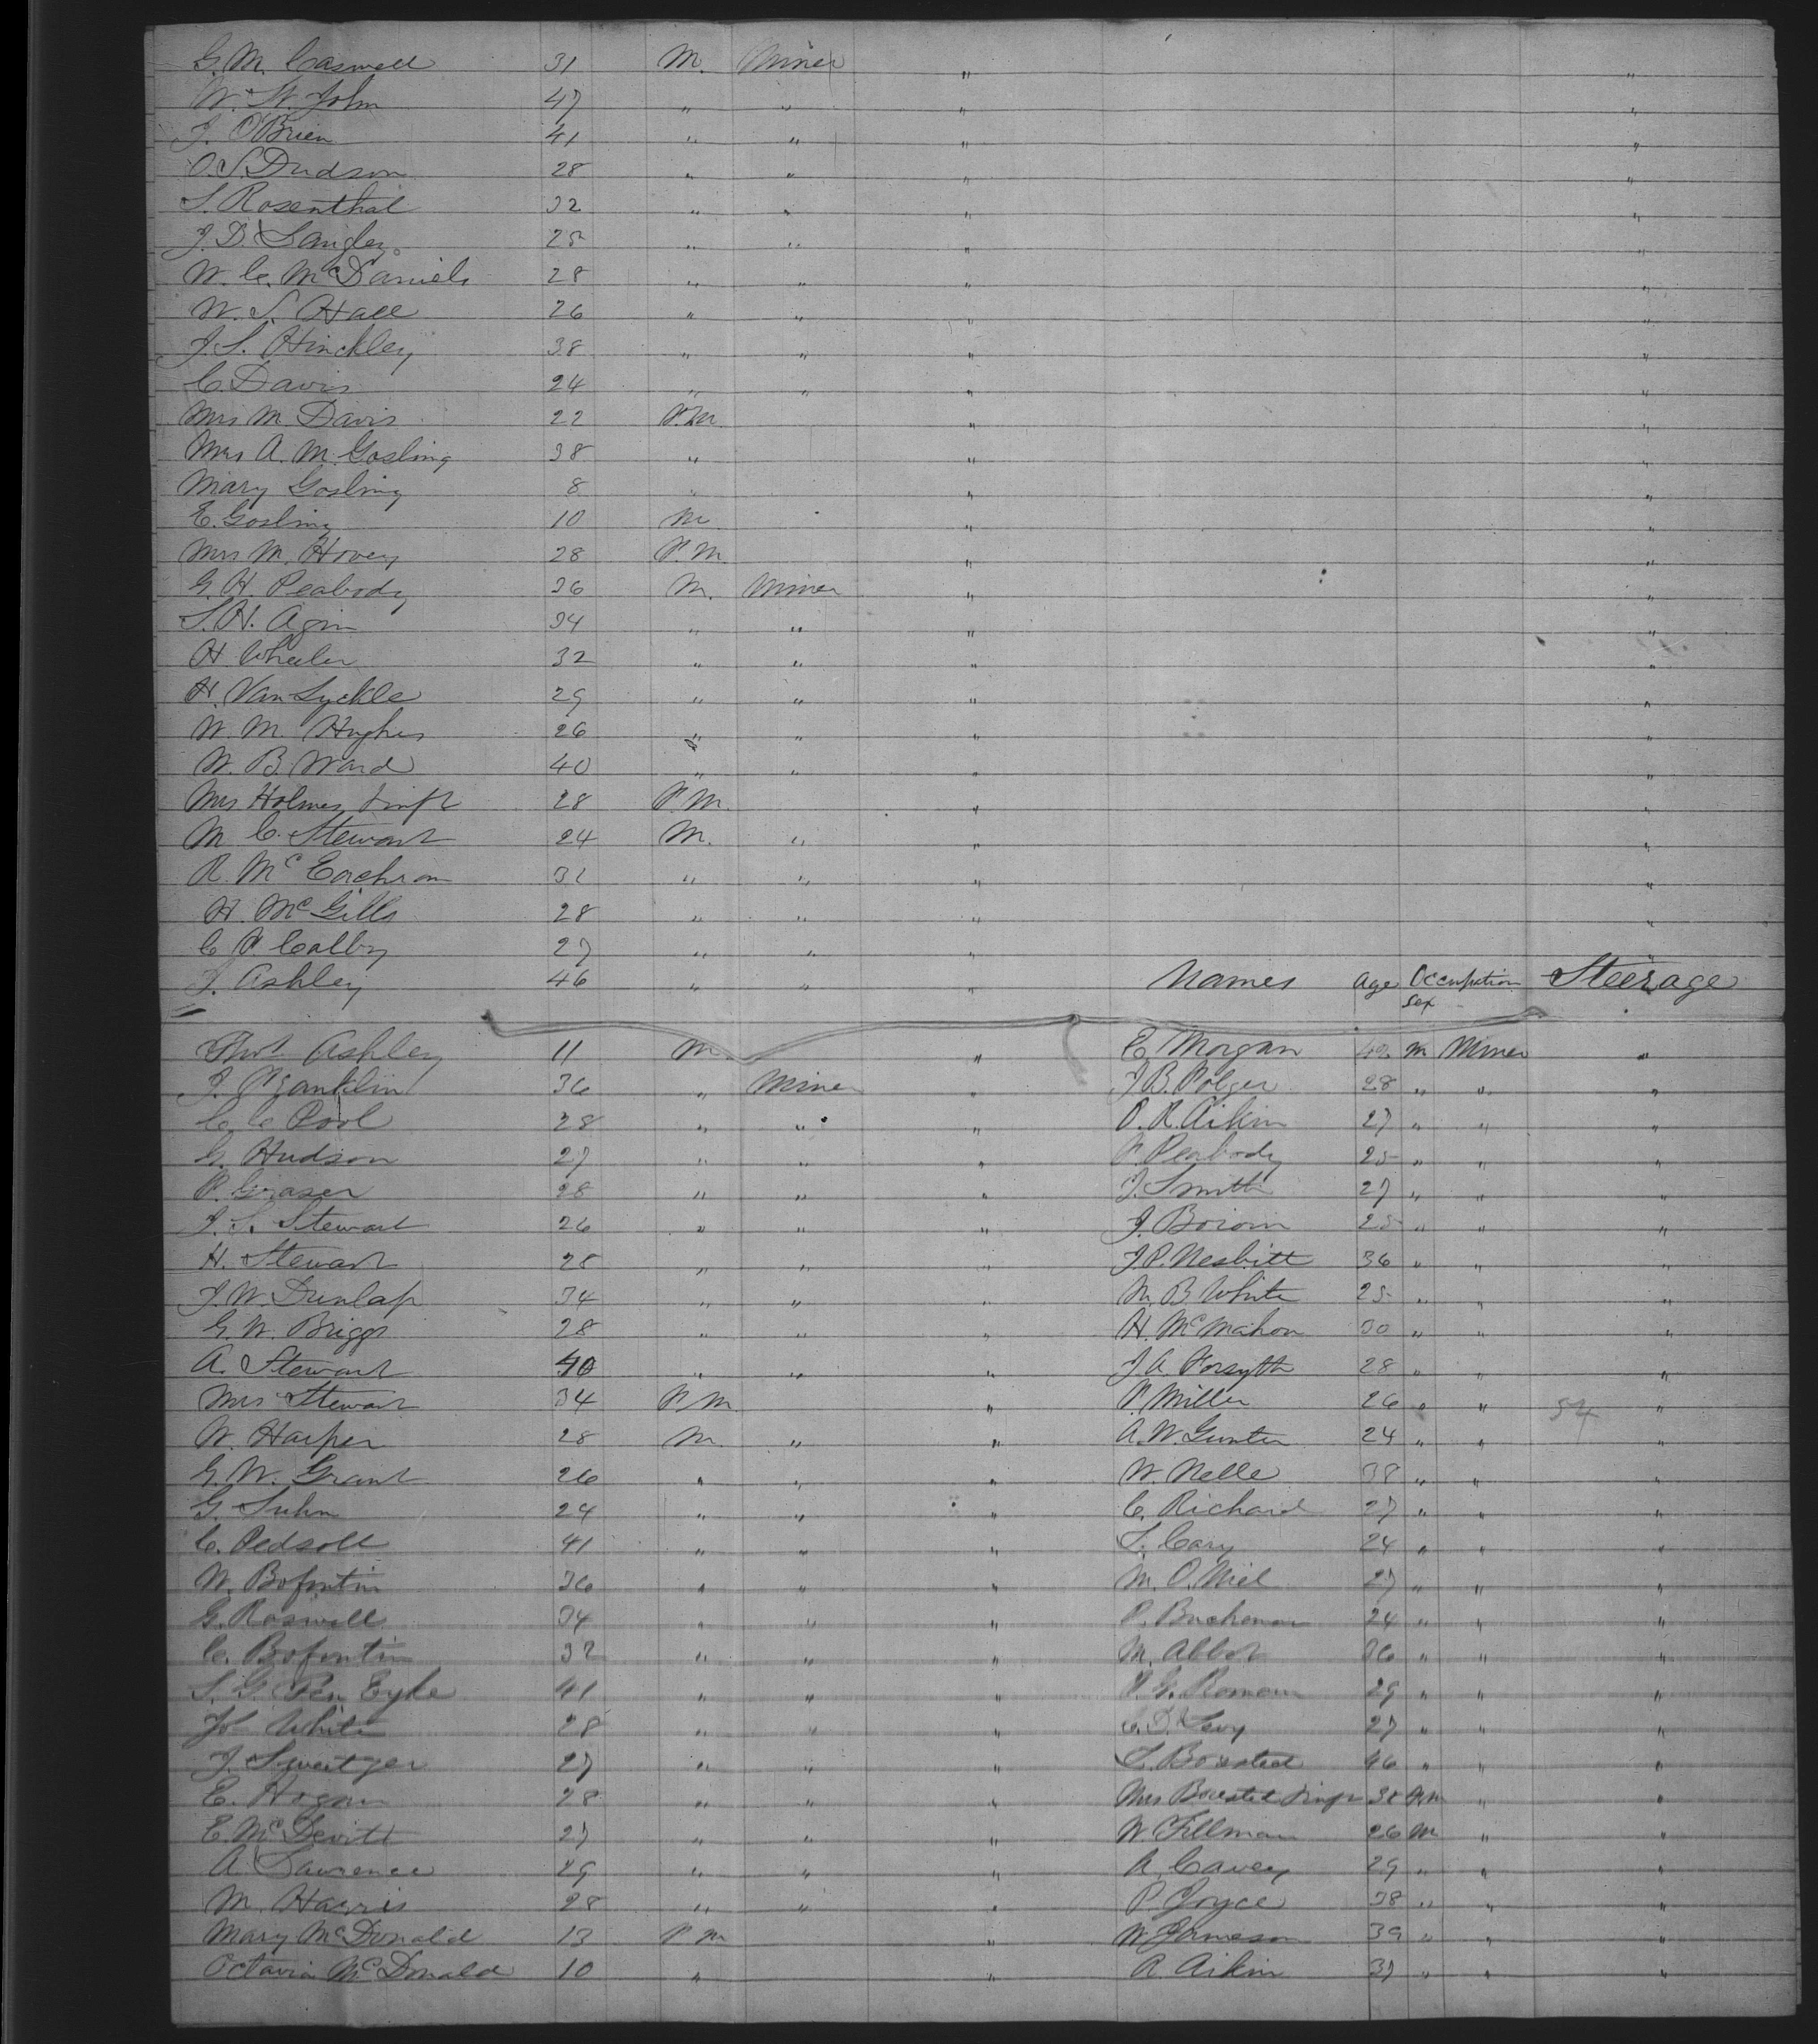 G. M. Caswell 31 M. Miner " "
W. St. John 47 " " " "
J. O'Brien 41 " " " "
O. S. Dudson 28 " " " "
S. Rosenthal 32 " " " "
J. D. Langley 25 " " " "
W. C. McDaniels 28 " " " "
W. S. Hall 26 " " " "
J. S. Hinckley 38 " " " "
C. Davis 24 " " " "
Mrs M. Davis 22 F.M. " "
Mrs A. M. Gosling 38 " " "
Mary Gosling 8 " " "
E. Gosling 10 M " "
Mrs M. Hovey 28 F.M. " "
G. H. Peabody 36 M. Miner " "
S. H. Agin 34 " " " "
H. Wheeler 32 " " " "
H. Van Syckle 29 " " " "
W. M. Hughes 26 " " " "
W. B. Ward 40 " " " "
Mrs Holmes & inft 28 F.M. " "
M. C. Stewart 24 M. " " "
R. McEachran 32 " " " "
H. McGills 28 " " " "
C. F. Colby 27 " " " "
J. Ashley 46 " " " Names Age Sex Occupation Steerage
Ashley 11 M. " C. Morgan M Miner "
J. Franklin 36 " Miner " J. B. Folger 28 " " "
C. C. Pool 28 " " " O. R. Aikin 27 " " "
G. Hudson 27 " " " F. Peabody 25 " " "
P. Graser 28 " " " J. Smith 27 " " "
J. S. Stewart 26 " " " J. 25 " " "
H. Stewart 28 " " " J. P. Nesbitt 36 " " "
J. W. Dunlap 34 " " " M. B. White 25 " " "
G. W. Briggs 28 " " " H. McMahon 30 " " "
A. Stewart 40 " " " J. A. Forsyth 28 " " "
Mrs Stewart 34 F.M. " F. Miller 26 " " 54 "
W. Harper 28 M. " " A. W. Gunter 24 " " "
G. W. Grant 26 " " " W. Nelle 38 " " "
G. Suhm 24 " " " C. Richard 27 " " "
C. Pedsoll 41 " " " S. Cary 24 " " "
W. Bofintin 36 " " " M. O. Niel 27 " " "
G. Roswell 34 " " " P. Buchanan 24 " " "
C. Bofintin 32 " " " M. Abbot 36 " " "
S. G. Ten Eyke 41 " " " F. G. Romain 29 " " "
Jos White 28 " " " C. D. Levy 27 " " "
J. Sweitzer 27 " " " S. Boested 46 " " "
E. Hogan 28 " " " Mrs Boested & inft 38 F.M " "
E. McDevitt 27 " " " W. Fillman 26 M " "
A. Lawrence 29 " " " R. Cavey 29 " " "
M. Harris 28 " " " P. Joyce 38 " " "
Mary McDonald 13 F.M " W. Jameson 39 " " "
Octavia McDonald 10 " " R. Aikin 37 " " "